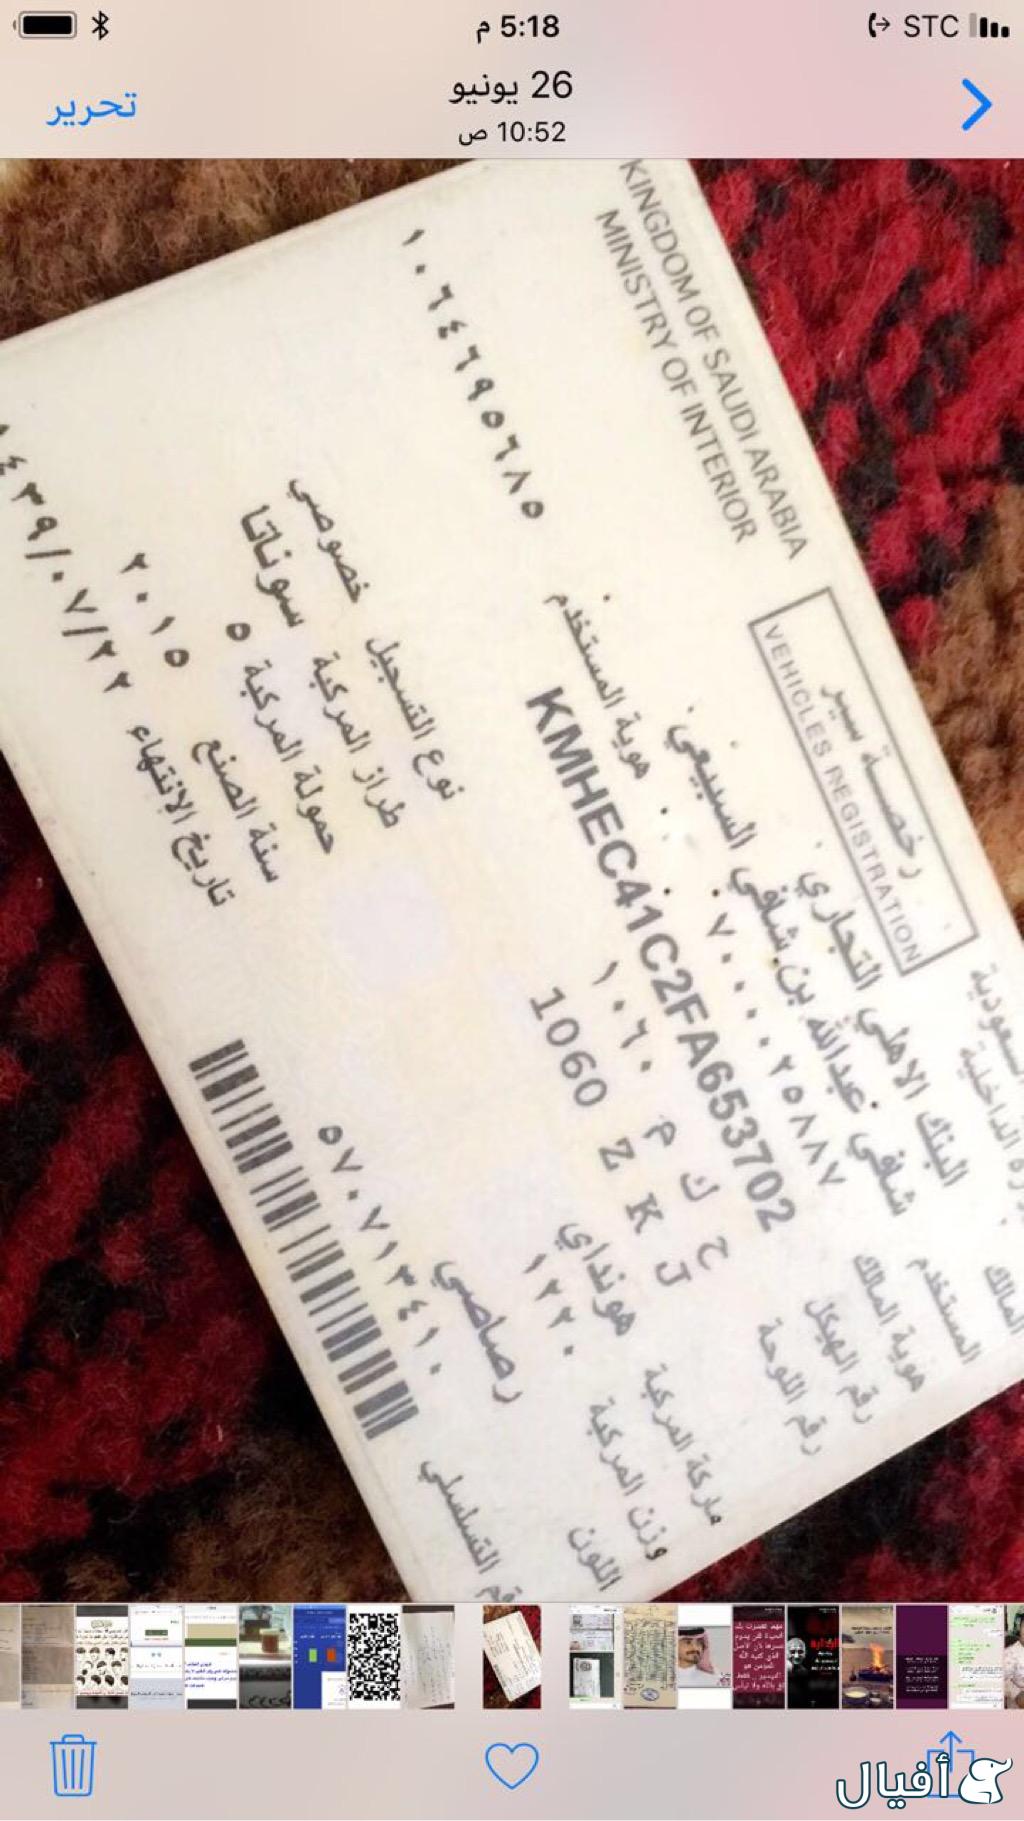 5:18 م
STC
26 يونيو
10:52 ص
تحرير
KINGDOM OF SAUDI ARABIA
MINISTRY OF INTERIOR
رخصة سير
VEHICLES REGISTRATION
السعودية
الداخلية
المالك البنك الاهلي التجاري
المستخدم شفي عبدالله بن شفي السبيعي
هوية المالك ٧٠٠٠٠٢٥٨٨٧ هوية المستخدم ١٠٦٤٦٩٥٦٨٥
رقم الهيكل KMHEC41C2FA653702
رقم اللوحة ح ك م ١٠٦٠
J K Z 1060
ماركة المركبة هونداي نوع التسجيل خصوصي
وزن المركبة ١٢٢٠ طراز المركبة سوناتا
اللون رصاصي حمولة المركبة ٥
سنة الصنع ٢٠١٥
التسلسلي ٥٧٠٧١٣٤١٠ تاريخ الإنتهاء ١٤٣٩/٠٧/٢٢
أفيال